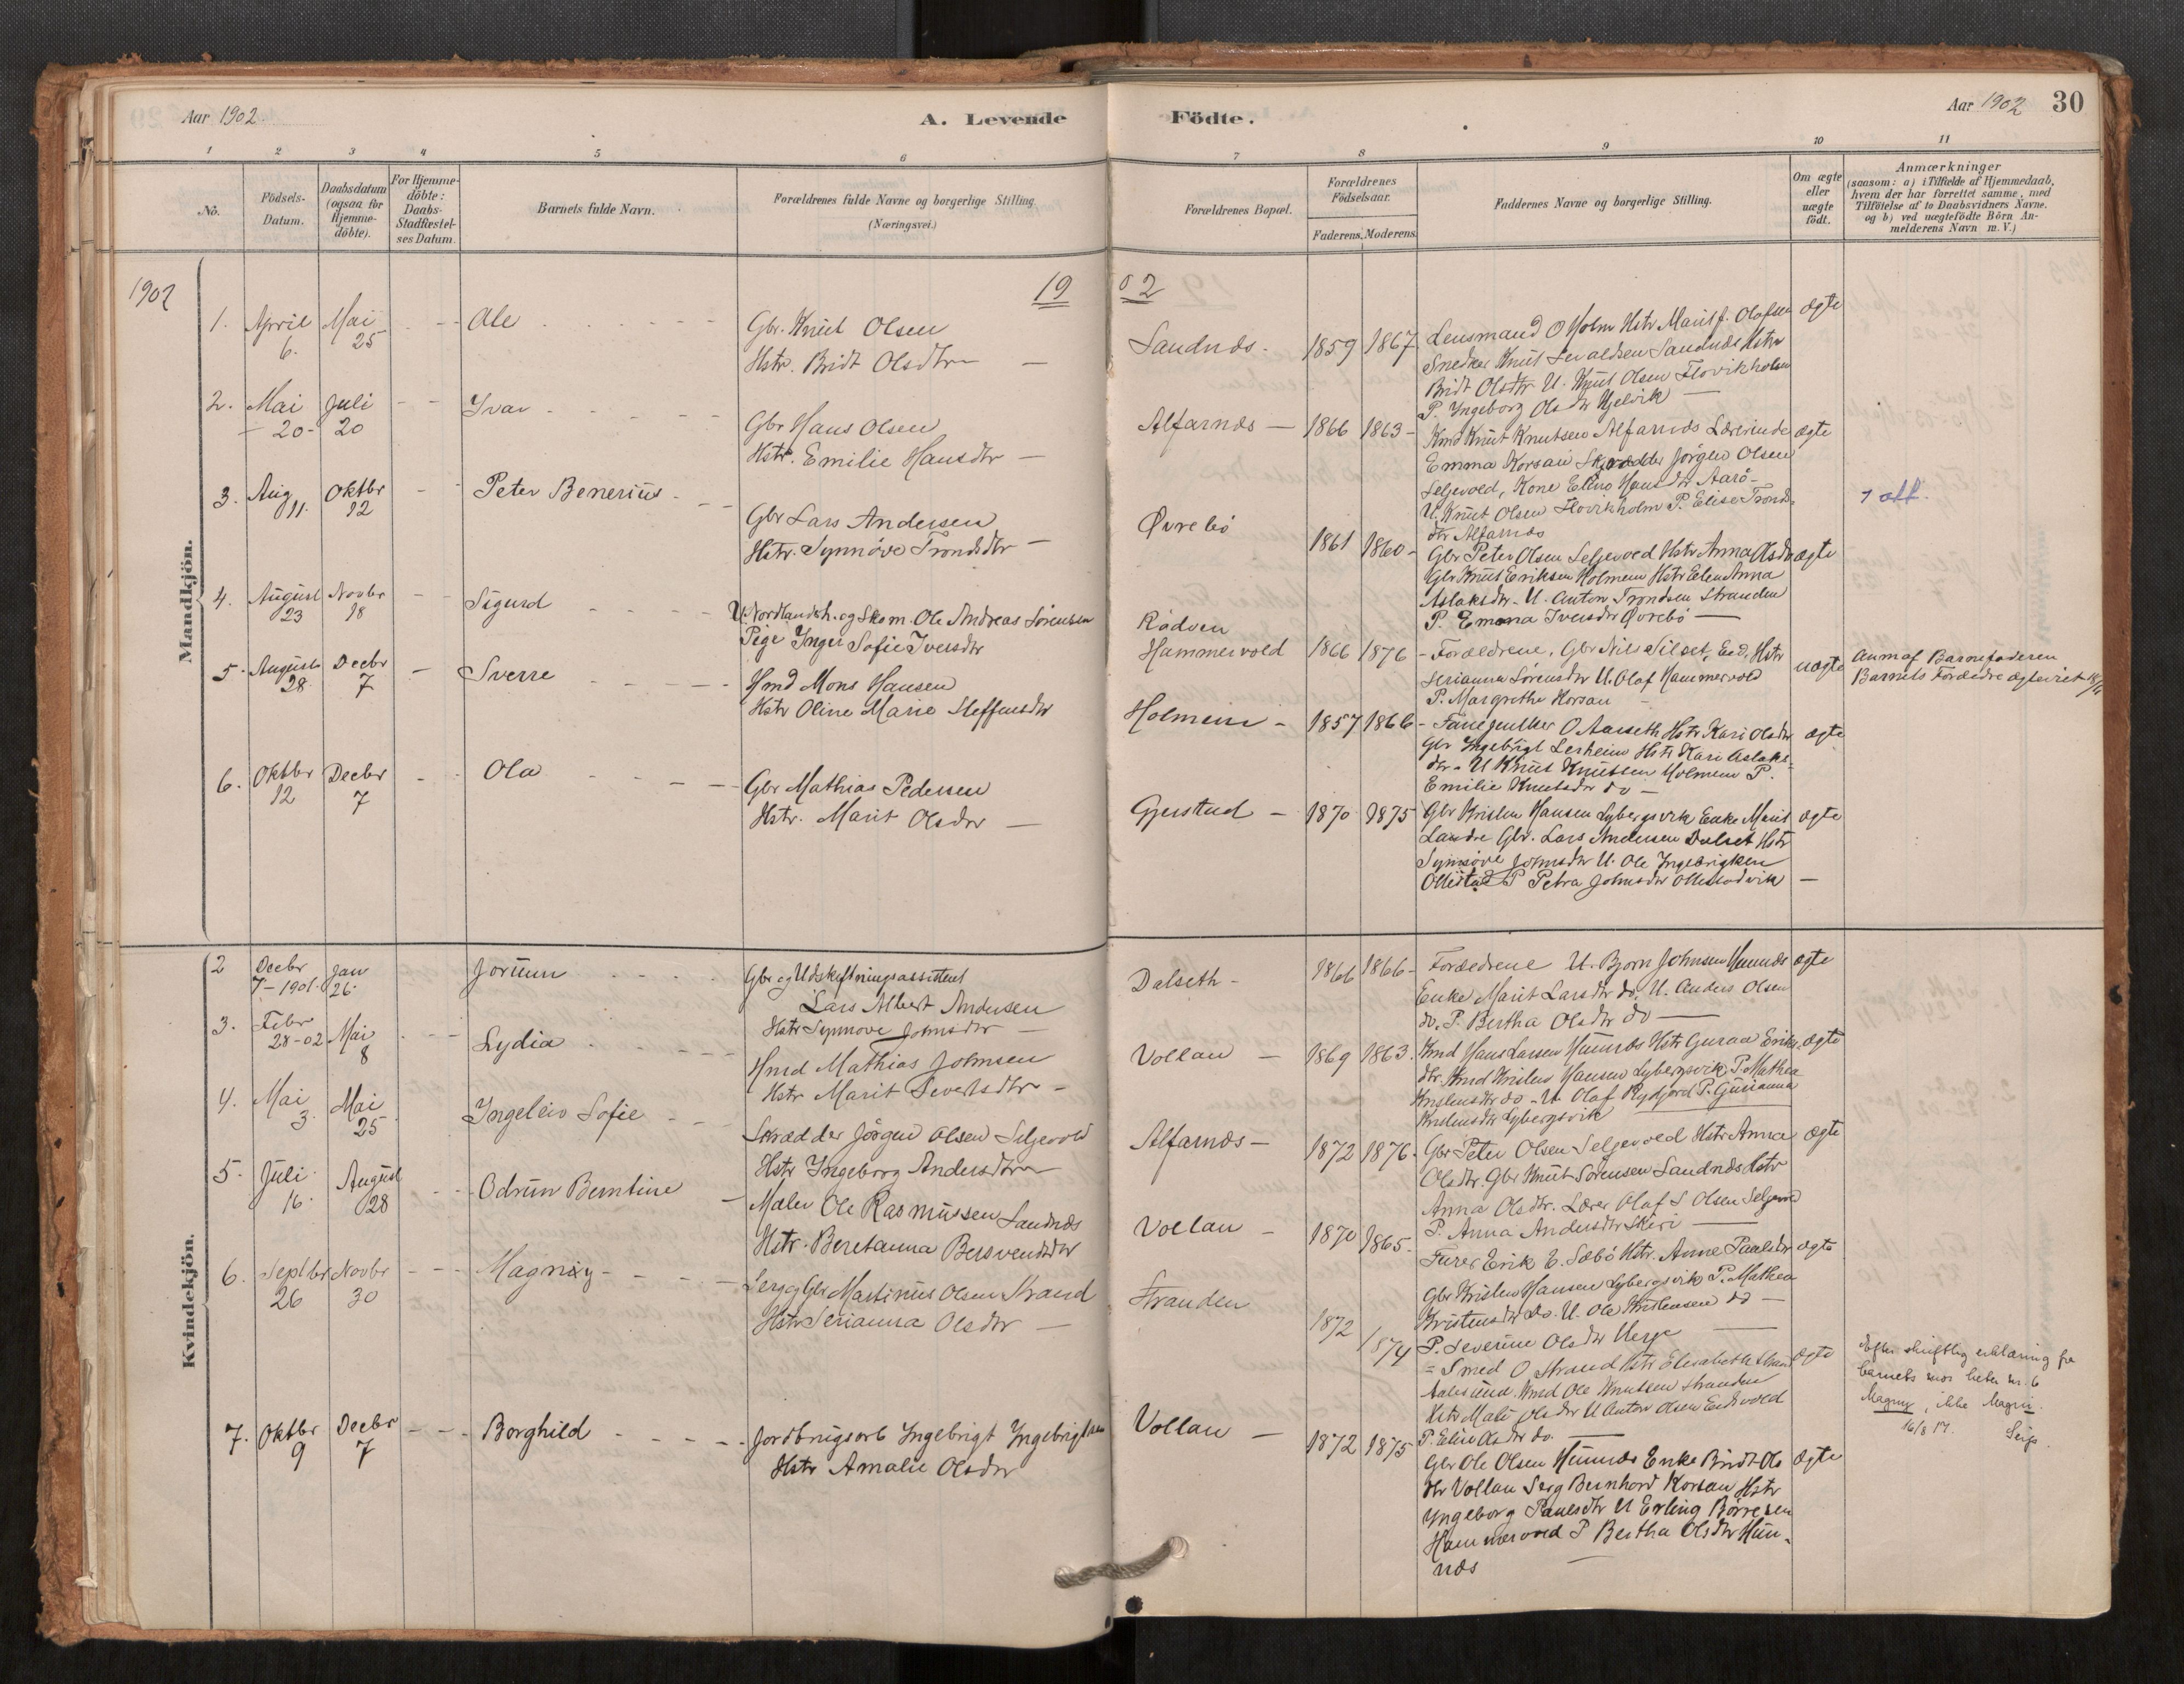 Aar 1902
A. Levende Födte.
Aar 1902 30
1 2 3 4 5 6 7 8 9 10 11
No.
Födsels-
Datum.
Daabsdatum
(ogsaa for
Hjemme-
döbte).
For Hjemme-
döbte:
Daabs-
Stadfæstel-
ses Datum.
Barnets fulde Navn.
Forældrenes fulde Navne og borgerlige Stilling
(Næringsvei.)
Forældrenes Bopæl.
Forældrenes
Födselsaar.
Faderens. Moderens.
Faddernes Navne og borgerlige Stilling.
Om ægte
eller
uægte
født.
Anmærkninger
(saasom: a) i Tilfælde af Hjemmedaab,
hvem der har forrettet samme, med
Tilföielse af to Daabsvidners Navne.
og b) ved uægtefödte Börn An-
melderens Navn m. V.)
1902
19 02
Mandkjön.
1. April 6. Mai 25 Ole
Gbr. Knut Olsen
Hstr. Bridt Olsdtr
Sandnæs - 1859 1867
Lensmand O Holm Hstr Marit f. Olafsen
Snedker Knut Sevaldsen Sandnæs Hstr
Bridt Olsdtr U. Knut Olsen Flovikholm
P. Ingeborg Olsdtr Hjelvik
ægte
2. Mai 20 Juli 20 Ivar
Gbr Hans Olsen
Hstr. Emilie Hansdtr
Alfarnæs 1866 1863
Kmd Knut Knutsen Alfarnæs Lærerinde
Emma Korsan Skrædder Jörgen Olsen
Seljevold, Kone Hansdtr Aarö
U. Knut Olsen Flovikholm P. Elise Tronds-
dtr Alfarnæs
ægte
3. Aug 11. Oktbr 12 Peter Benerius
Gbr Lars Andersen
Hstr. Synnöve Trondsdtr
Øvrebö 1861 1860
Gbr Peter Olsen Seljevold Hstr Anna Olsdtr
Gbr Knut Eriksen Holmem Hstr Elen Anna
Aslaksdtr U. Anton Trondsen Stranden
P. Emma Iversdtr Øvrebö
ægte
1 att.
4. August 23 Novbr 18 Sigurd
U. Nordlandsh. og Skom. Ole Andreas Sörensen
Pige Inger Sofie Iversdtr
Rödven
Hammervold 1866 1876
Forældrene, Gbr Nils Silset, Eid, Hstr
Serianna Sörensdtr U. Olaf Hammervold
P. Margrethe Korsan
uægte
Anm af Barnefaderen
Barnets Forældre ægteviet
5. August 28. Decbr 7 Sverre
Hmd Mons Hansen
Hstr Oline Marie Steffensdtr
Holmem - 1857 1866
Fanejunker O Aasseth Hstr Kari Olsdtr
Gbr Ingebrigt Lerheim Hstr Kari Aslaks-
dtr - U Knut Knutsen Holmem P.
Emilie Knutsdtr do
ægte
6. Oktbr 12 Decbr 7 Ola
Gbr Mathias Pedersen
Hstr. Marit Olsdtr
Gjerstad 1870 1875
Gbr Kristen Hansen Lybergsvik Enke Marit
Landre Gbr. Lars Andersen Dalset Hstr
Synnöve Johnsdtr U. Ole Ingebrigtsen
P Petra Johnsdtr
ægte
Kvindekjön.
2 Decbr 7-1901. Jan 26. Jorunn
Gbr og Udskiftningsassistent
Lars Albert Andersen
Hstr Synnöve Johnsdtr
Dalseth - 1866 1866
Forældrene U. Bjorn Johnsen Hunnæs
Enke Marit Larsdtr do. U. Anders Olsen
do. P. Bertha Olsdtr do
ægte
3. Febr 28-02 Mai 8 Lydia
Hmd Mathias Johnsen
Hstr Marit Sivertsdtr
Vollan 1869 1863.
Kmd Hans Larsen Hunnæs Hstr Guraa Eriks-
dtr. Kmd Kristen Hansen Lybergsvik, P. Mathea
Kristensdtr do - U. Olaf Rydjord P. Gurianna
Kristensdtr Lybergsvik
ægte
4. Mai 3. Mai 25 Ingeleiv Sofie
Skrædder Jörgen Olsen Seljevold
Hstr Ingeborg Andersdtr
Alfarnæs 1872 1876.
Gbr Peter Olsen Seljevold Hstr Anna
Olsdtr. Gbr Knut Sörensen Sandnæs Hstr
Anna Olsdtr. Lærer Olaf S Olsen Seljevold
P. Anna Andersdtr Skeri
ægte
5. Juli 16. August 28 Odrun Berntine
Maler Ole Rasmussen Sandnæs
Hstr. Beretanna Bersvendsdtr
Vollan 1870 1865.
Furer Erik E. Sæbö Hstr. Anne Paulsdtr
Gbr Kristen Hansen Lybergsvik P. Mathea
Kristensdtr do. U. Ole Kristensen do
P. Severine Olsdtr Uerge
ægte
6. Septbr 26 Novbr 30 Magny
Serg og Gbr Martinus Olsen Strand
Hstr Serianna Olsdtr
Stranden 1872 1874
Smed O Strand Hstr Elisabeth Strand
Aalesund. Kmd Ole Knutsen Stranden
Hstr Mali Olsdtr U Anton Olsen Eidsvold
P. Elise Olsdtr do.
ægte
Efter skriftlig erklæring fra
barnets mor heter nr. 6
Magny, ikke Magni.
16/8 17.
7. Oktbr 9 Decbr 7 Borghild
Jordbrugsarb Ingebrigt Ingebrigtsen
Hstr Amalie Olsdtr
Vollan 1872 1875
Gbr Ole Olsen Hunnæs Enke Bridt Ols
dtr Vollan Serg Bernhard Korsan Hstr
Ingeborg Paulsdtr U Erling Börresen
Hammervold P Bertha Olsdtr Hun-
næs
ægte